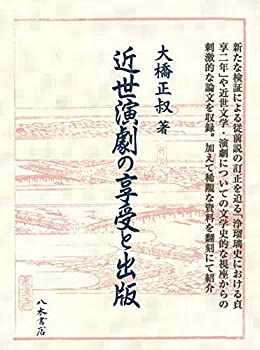 新たな検証による従前説の訂正を迫る「浄瑠璃史における貞
享二年」や近世文学・演劇についての文学史的な視座からの
刺激的な論文を収録。加えて稀覯な資料を翻刻にて紹介
大橋正叔 著
近世演劇の享受と出版
八木書店